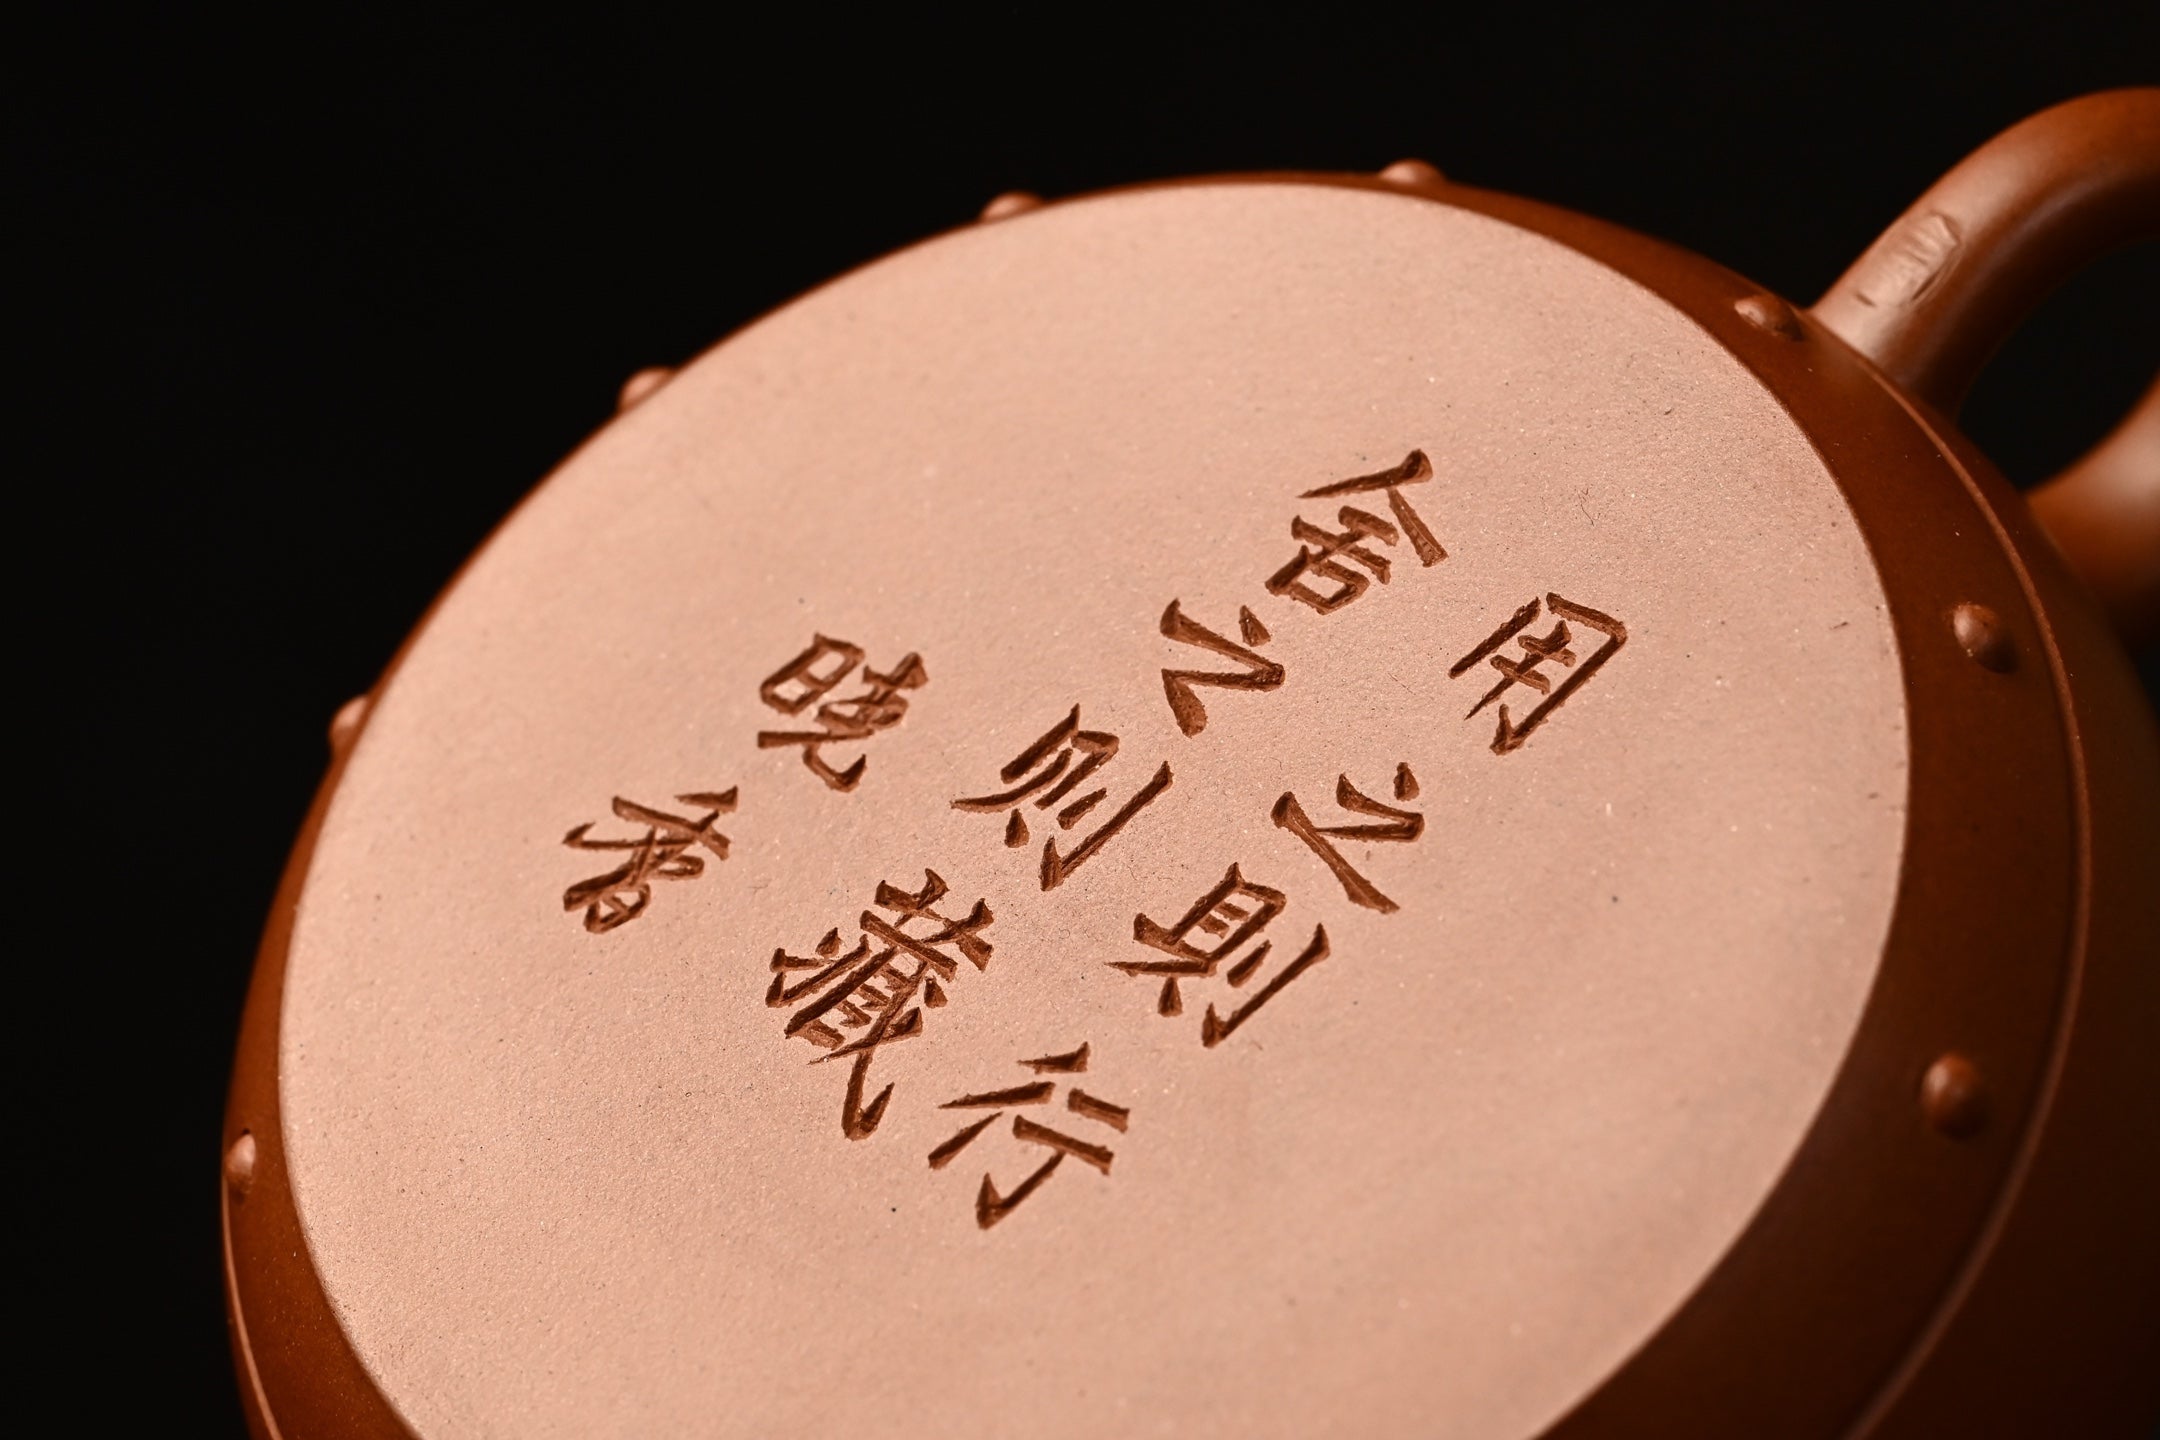 用之則行
舍之則藏
曉春